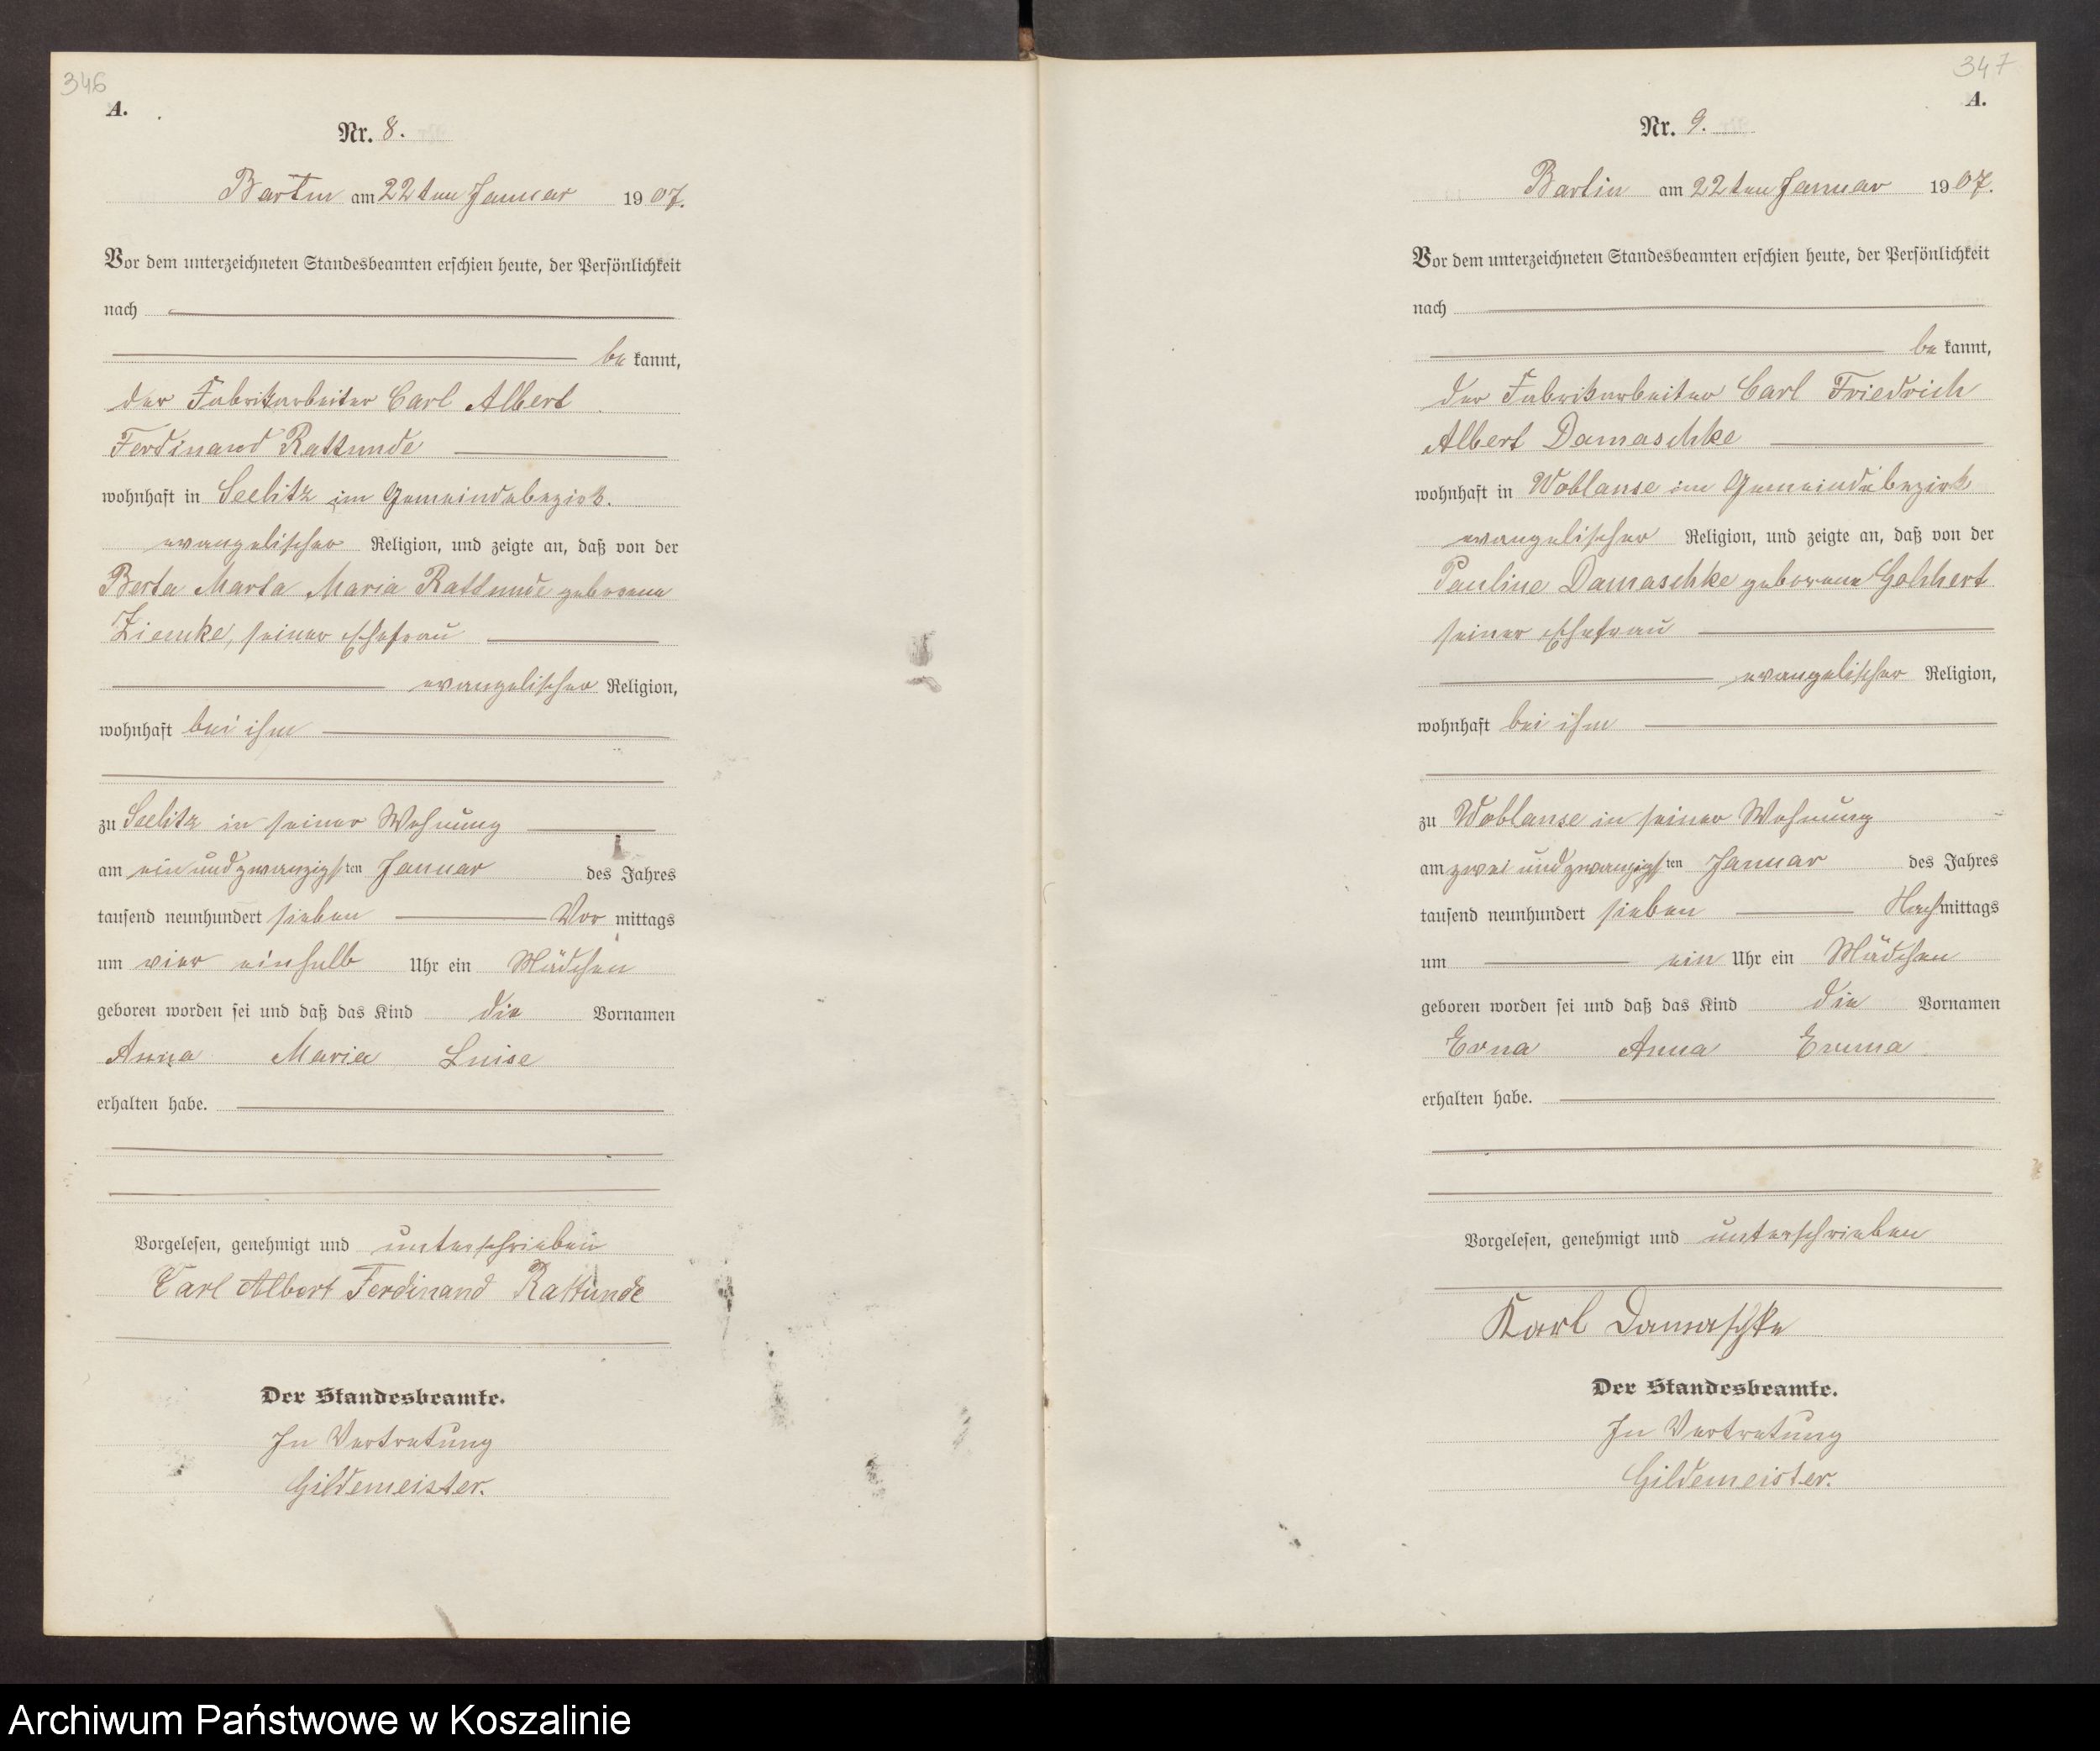 346
A.
Nr. 8.
Bartin am 22ten Januar 1907.
Vor dem unterzeichneten Standesbeamten erschien heute, der Persönlichkeit
nach
be kannt,
der Fabrikarbeiter Carl Albert
Ferdinand Rattunde
wohnhaft in Seelitz im Gemeindebezirk.
evangelischer Religion, und zeigte an, daß von der
Berta Marta Maria Rattunde geborene
Ziemke, seiner Ehefrau
evangelischer Religion,
wohnhaft bei ihm
zu Seelitz in seiner Wohnung
am ein und zwanzigsten Januar des Jahres
tausend neunhundert sieben Vor mittags
um vier einhalb Uhr ein Mädchen
geboren worden sei und daß das Kind die Vornamen
Anna Maria Luise
erhalten habe.
Vorgelesen, genehmigt und unterschrieben
Carl Albert Ferdinand Rattunde
Der Standesbeamte.
In Vertretung
Gildemeister.
347
A.
Nr. 9.
Bartin am 22ten Januar 1907.
Vor dem unterzeichneten Standesbeamten erschien heute, der Persönlichkeit
nach
be kannt,
der Fabrikarbeiter Carl Friedrich
Albert Damaschke
wohnhaft in Woblanse im Gemeindebezirk
evangelischer Religion, und zeigte an, daß von der
Pauline Damaschke geborene
seiner Ehefrau
evangelischer Religion,
wohnhaft bei ihm
zu Woblanse in seiner Wohnung
am zwei und zwanzigsten Januar des Jahres
tausend neunhundert sieben Nachmittags
um ein Uhr ein Mädchen
geboren worden sei und daß das Kind die Vornamen
Erna Anna Emma
erhalten habe.
Vorgelesen, genehmigt und unterschrieben
Karl Damaschke
Der Standesbeamte.
In Vertretung
Gildemeister.
Archiwum Państwowe w Koszalinie